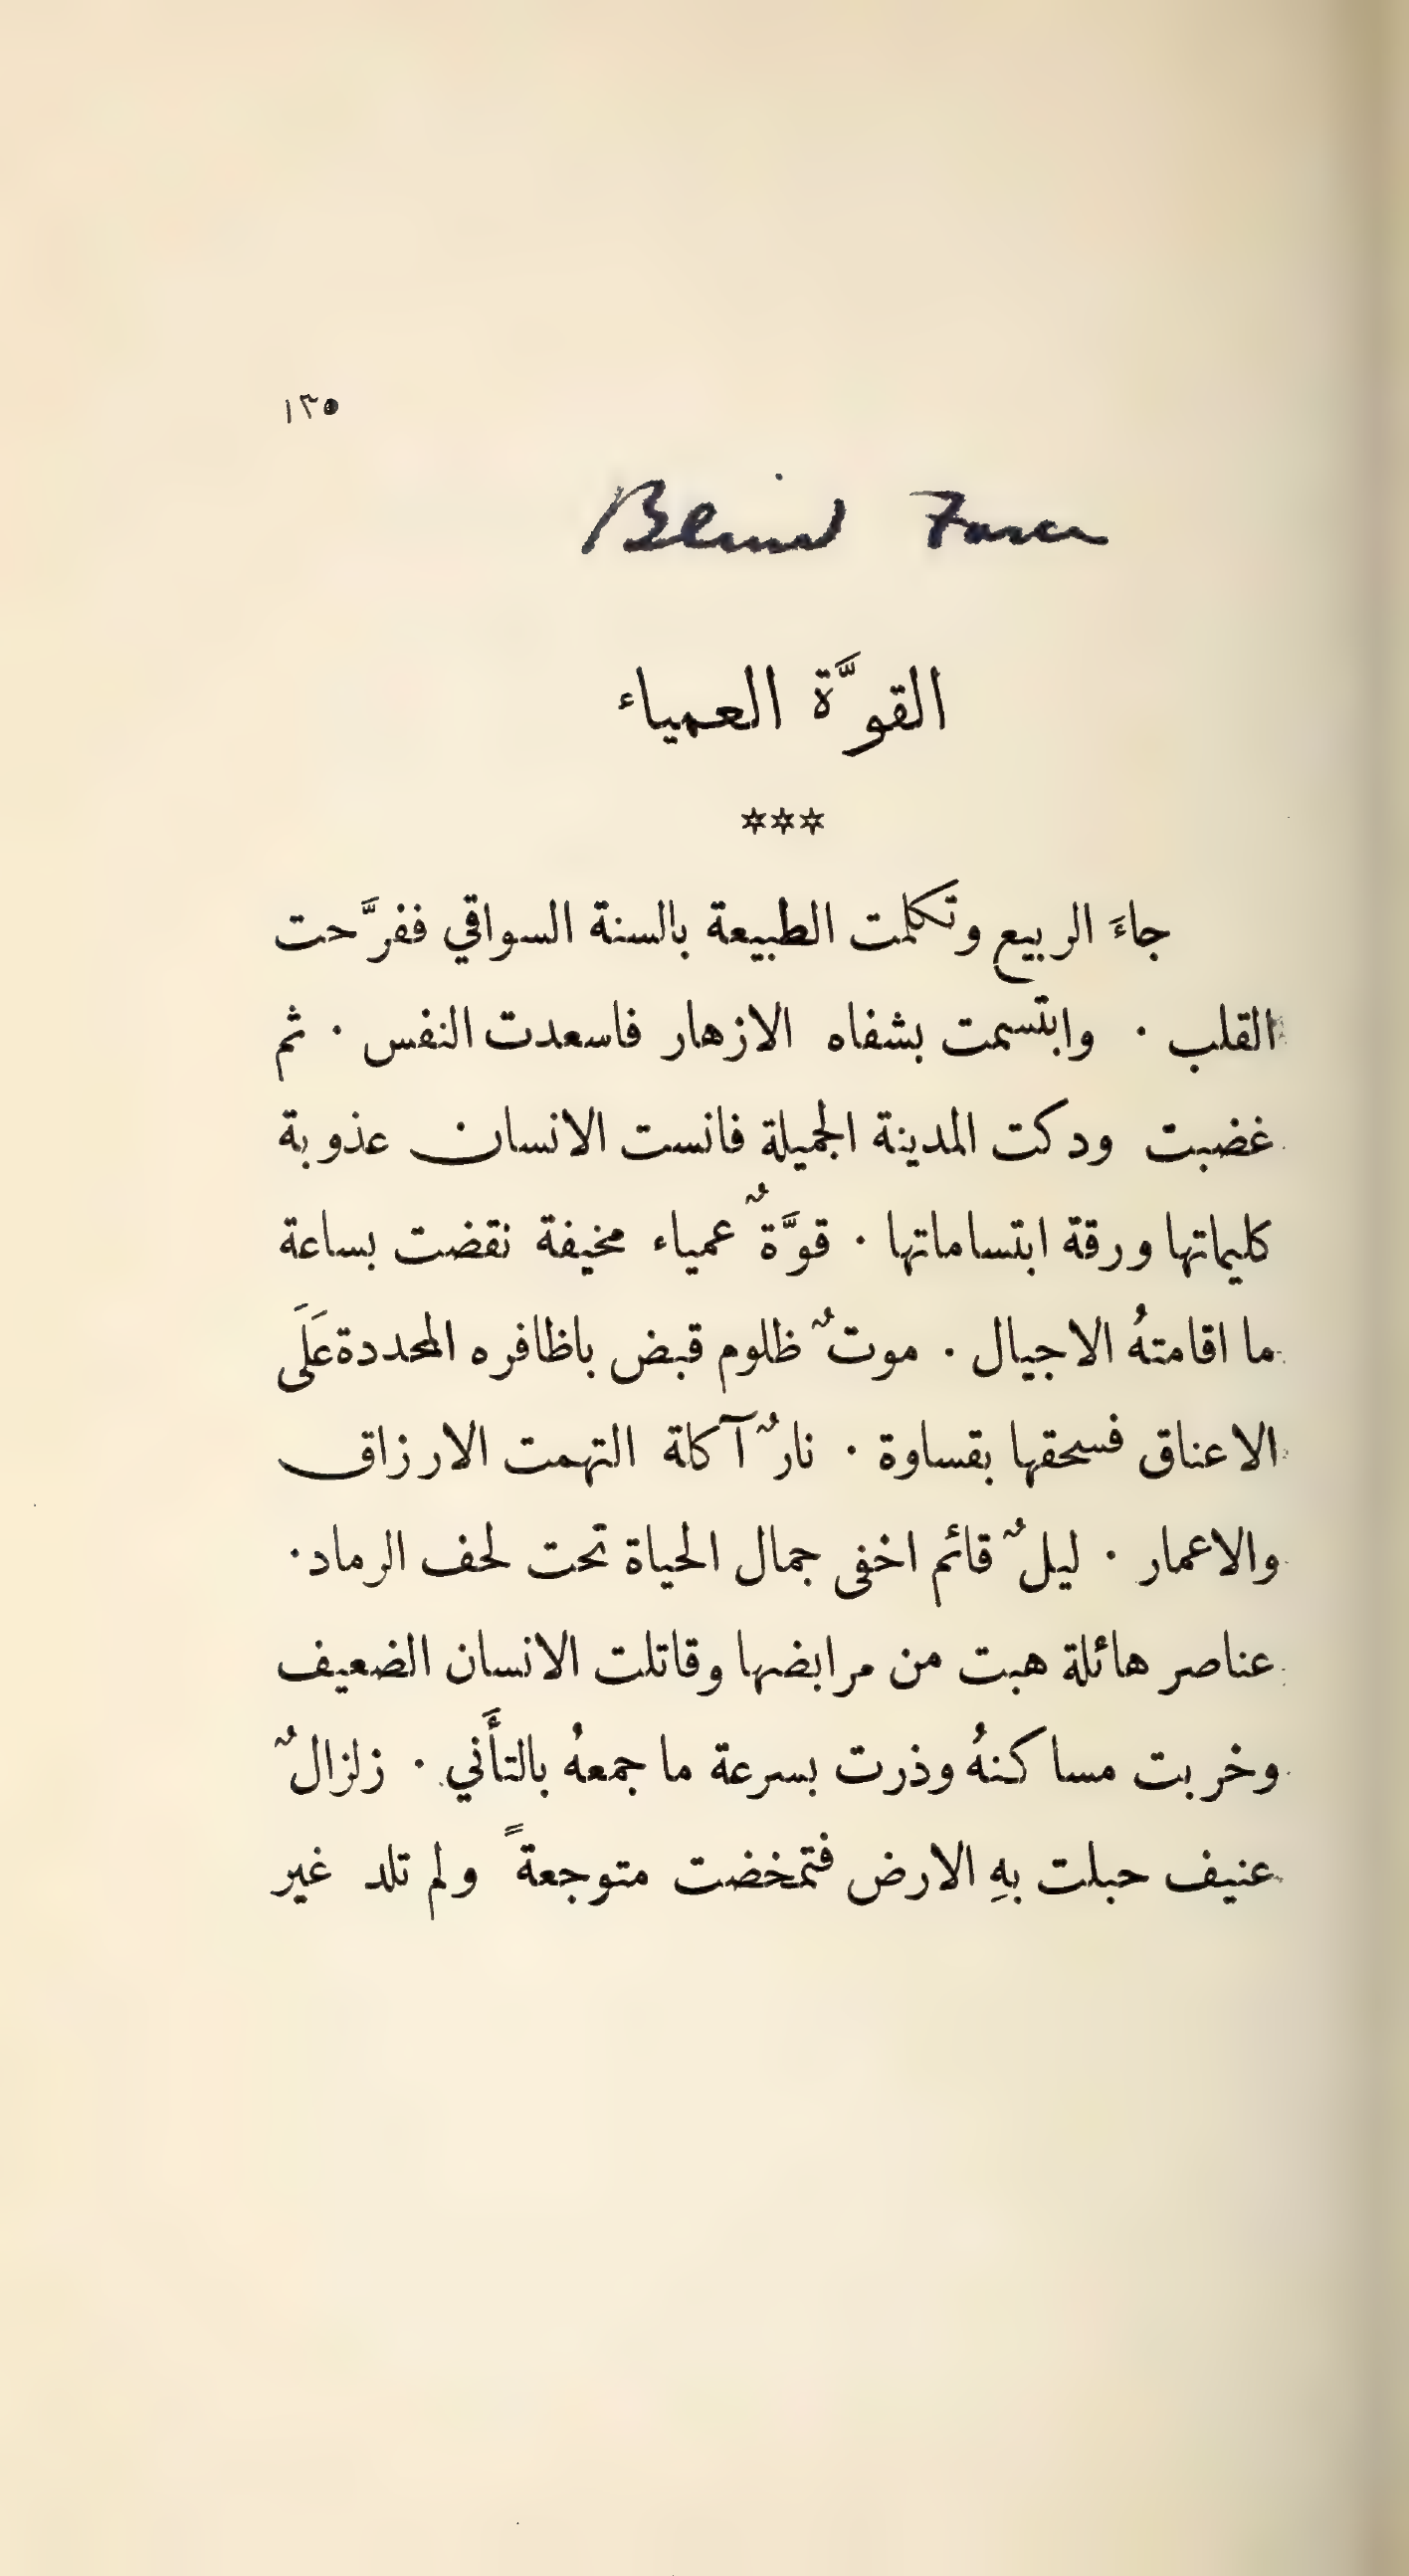 ١٣٥
Blind Force
القوَّة العمياء
***
جاءَ الربيع وتكلمت الطبيعة بالسنة السواقي ففرَّحت
القلب . وابتسمت بشفاه الازهار فاسعدت النفس . ثم
غضبت ودكت المدينة الجميلة فانست الانسان عذوبة
كليماتها ورقة ابتساماتها . قوَّةٌ عمياء مخيفة نقضت بساعة
ما اقامتهُ الاجيال . موتٌ ظلوم قبض باظافره المحددة عَلَى
الاعناق فسحقها بقساوة . نارٌ آكلة التهمت الارزاق
والاعمار . ليلٌ قائم اخفى جمال الحياة تحت لحف الرماد .
عناصر هائلة هبت من مرابضها وقاتلت الانسان الضعيف
وخربت مساكنهُ وذرت بسرعة ما جمعهُ بالتأَني . زلزالٌ
عنيف حبلت بهِ الارض فتمخضت متوجعةً ولم تلد غير